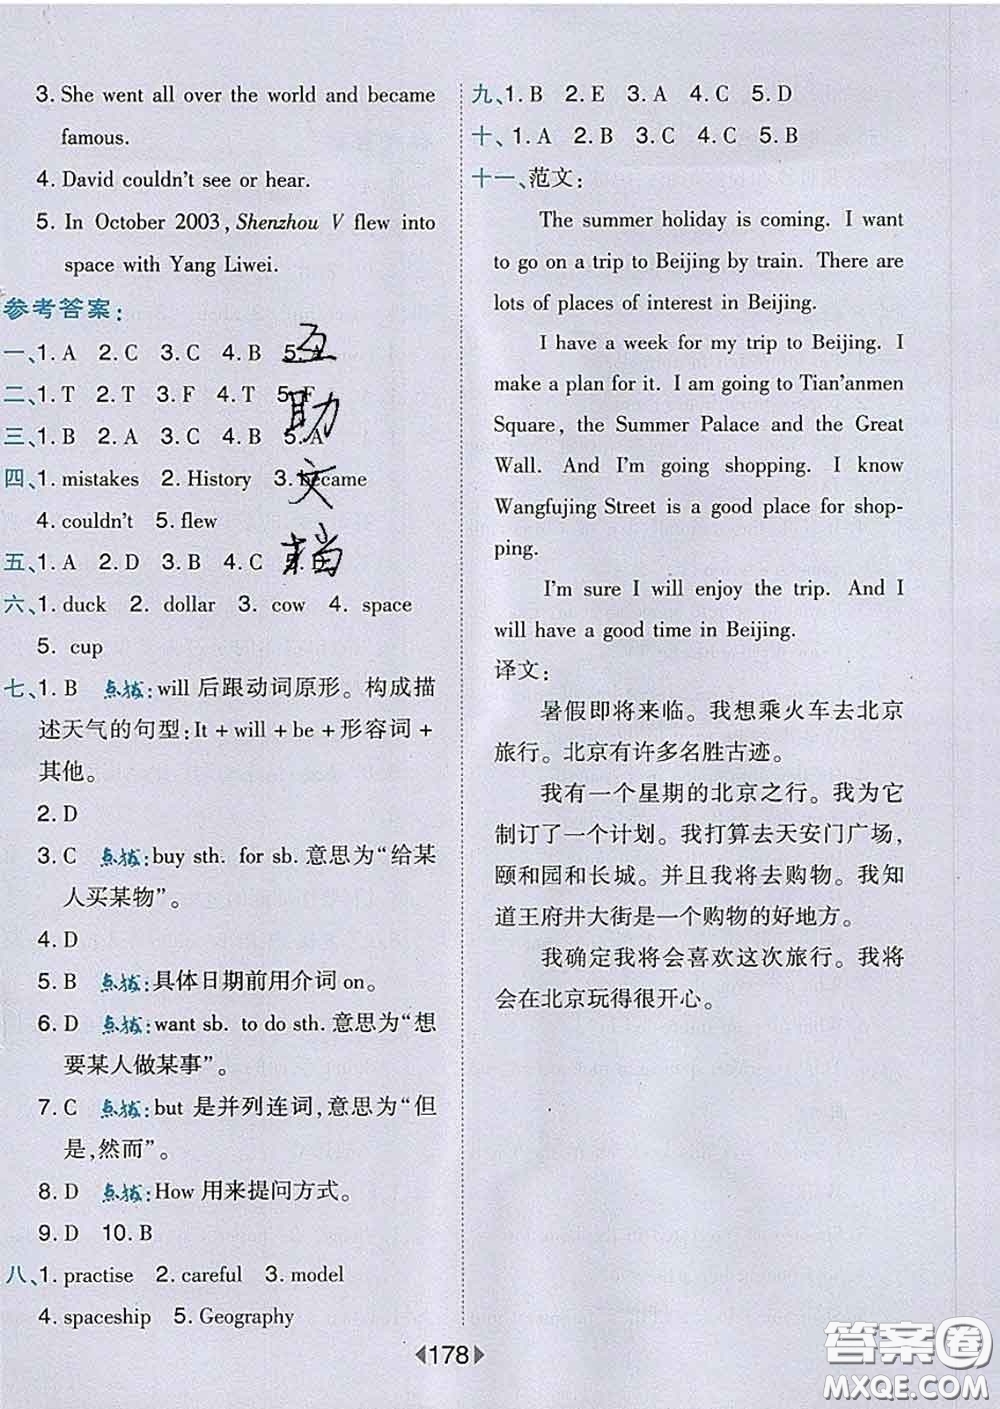 3. She went all over the world and became
famous.
4. David couldn't see or hear.
5. In October 2003, Shenzhou V flew into
space with Yang Liwei.
参考答案:
一、1. A 2. C 3. C 4. B 5. A
二、1. T 2. T 3. F 4. T 5. F
三、1. B 2. A 3. B 4. B 5. A
四、1. mistakes 2. History 3. became
4. couldn't 5. flew
五、1. A 2. D 3. B 4. C 5. D
六、1. duck 2. dollar 3. cow 4. space
5. cup
七、1. B 点拨:will 后跟动词原形。构成描
述天气的句型:It + will + be + 形容词 +
其他。
2. D
3. C 点拨:buy sth. for sb. 意思为“给某
人买某物”。
4. D
5. B 点拨:具体日期前用介词 on。
6. D 点拨:want sb. to do sth. 意思为“想
要某人做某事”。
7. C 点拨:but 是并列连词,意思为“但
是,然而”。
8. D 点拨:How 用来提问方式。
9. D 10. B
八、1. practise 2. careful 3. model
4. spaceship 5. Geography
九、1. B 2. E 3. A 4. C 5. D
十、1. A 2. B 3. A 4. C 5. B
十一、范文:
The summer holiday is coming. I want
to go on a trip to Beijing by train. There are
lots of places of interest in Beijing.
I have a week for my trip to Beijing. I
make a plan for it. I am going to Tian'anmen
Square, the Summer Palace and the Great
Wall. And I'm going shopping. I know
Wangfujing Street is a good place for shop-
ping.
I'm sure I will enjoy the trip. And I
will have a good time in Beijing.
译文:
暑假即将来临。我想乘火车去北京
旅行。北京有许多名胜古迹。
我有一个星期的北京之行。我为它
制订了一个计划。我打算去天安门广场,
颐和园和长城。并且我将去购物。我知
道王府井大街是一个购物的好地方。
我确定我将会喜欢这次旅行。我将
会在北京玩得很开心。
178
互
助
文
档
答案圈
MXQE.COM